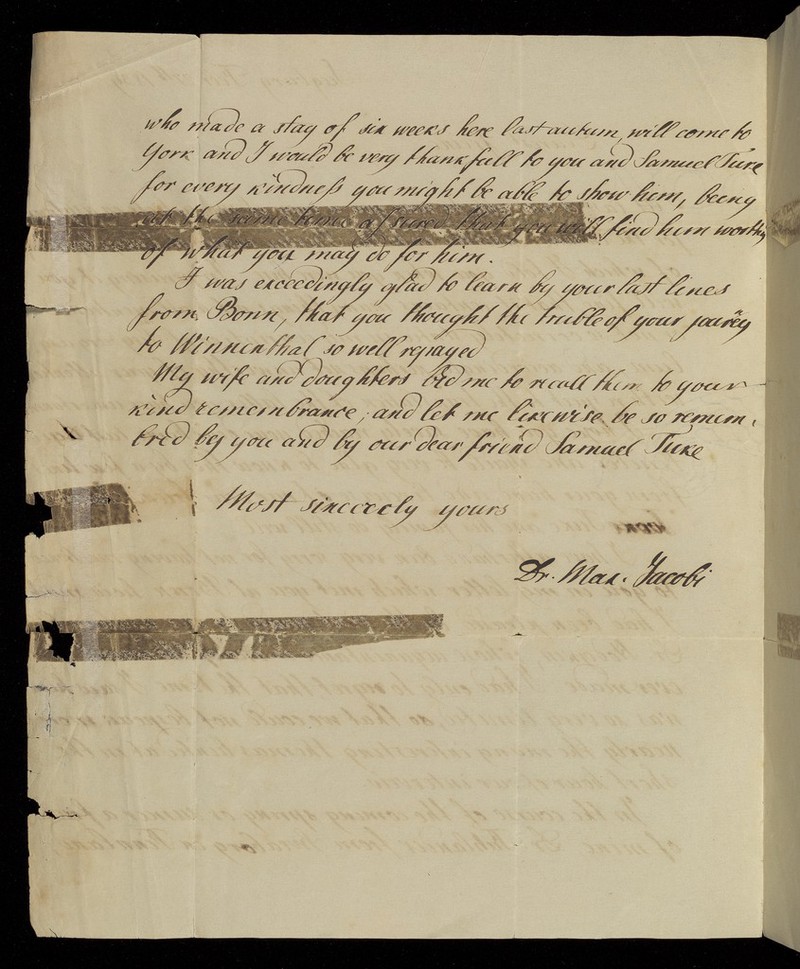 who made a stay of six weeks here last autum, will come to
York and I would be very thankfull to you and Samuel Tuke
for every kindness you might be able to show him, beeng
at the same time assured that you will find him worthy
of what you may do for him.
I was exceedingly glad to learn by your last lines
from Bonn, that you thought the truble of your jourey
to Winnenthal so well repayed
My wife and doughters bid me to recall them to your
kind remembrance; and let me likewise be so remem
bred by you and by our dear friend Samuel Tuke
Most sincerely yours
Dr. Max. Jacobi